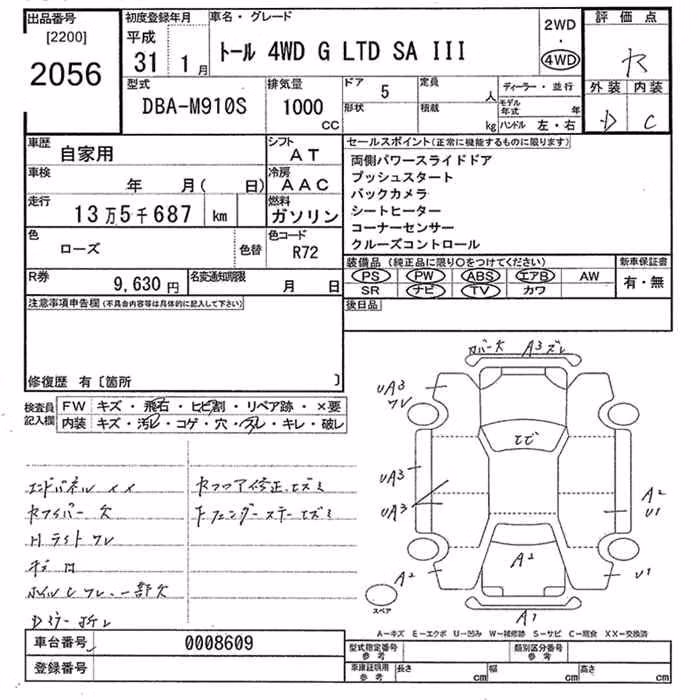 出品番号
[2200]
2056
初度登録年月
平成
31 1月
車名・グレード
トール 4WD G LTD SA III
2WD
・
4WD
評価点
外装 内装
D C
型式
DBA-M910S
排気量
1000
CC
ドア 5
形状
定員 人
積載 kg
ディーラー・並行
モデル年式 年
ハンドル 左・右
車歴
自家用
シフト
AT
車検
年 月( 日)
冷房
AAC
走行
13万5千687 km
燃料
ガソリン
色
ローズ
色替
色コード
R72
R券
9,630円
名変通知期限
月 日
セールスポイント(正常に機能するものに限ります)
両側パワースライドドア
プッシュスタート
バックカメラ
シートヒーター
コーナーセンサー
クルーズコントロール
装備品 (純正品に限り〇をつけてください)
PS PW ABS エアB AW
SR ナビ TV カワ
新車保証書
有・無
後日品
注意事項申告欄(不具合内容等は具体的に記入して下さい)
修復歴 有〔箇所 〕
検査員記入欄
FW キズ・飛石・ヒビ割・リペア跡・×要
内装 キズ・汚レ・コゲ・穴・スレ・キレ・破レ
A3 ズレ
UA3
ワレ
ヒビ
UA3
UA3
A2
U1
A2
A2
U1
A1
スペア
エンドパネル イイ
Rワイパー 欠
Hライト ワレ
Fフェンダーステー
A-キズ E-エクボ U-凹み W-補修跡 S-サビ C-腐食 XX-交換済
車台番号
0008609
登録番号
型式指定番号
参考
類別区分番号
参考
車庫証明用
参考
長さ cm
幅 cm
高さ cm